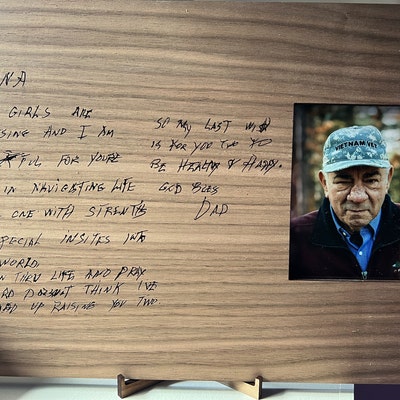 NA
GIRLS ARE
SING AND I AM
FUL FOR YOUR
IN NAVIGATING LIFE
ONE WITH STRENTHS
SPECIAL INSITES INTO
WORLD.
THRU LIFE AND PRAY
ORD DOESNT THINK I'VE
ED UP RAISING YOU TWO
SO MY LAST WISH
IS FOR YOU TWO TO
BE HEALTHY & HAPPY.
GOD BLESS
DAD
VIETNAM VET